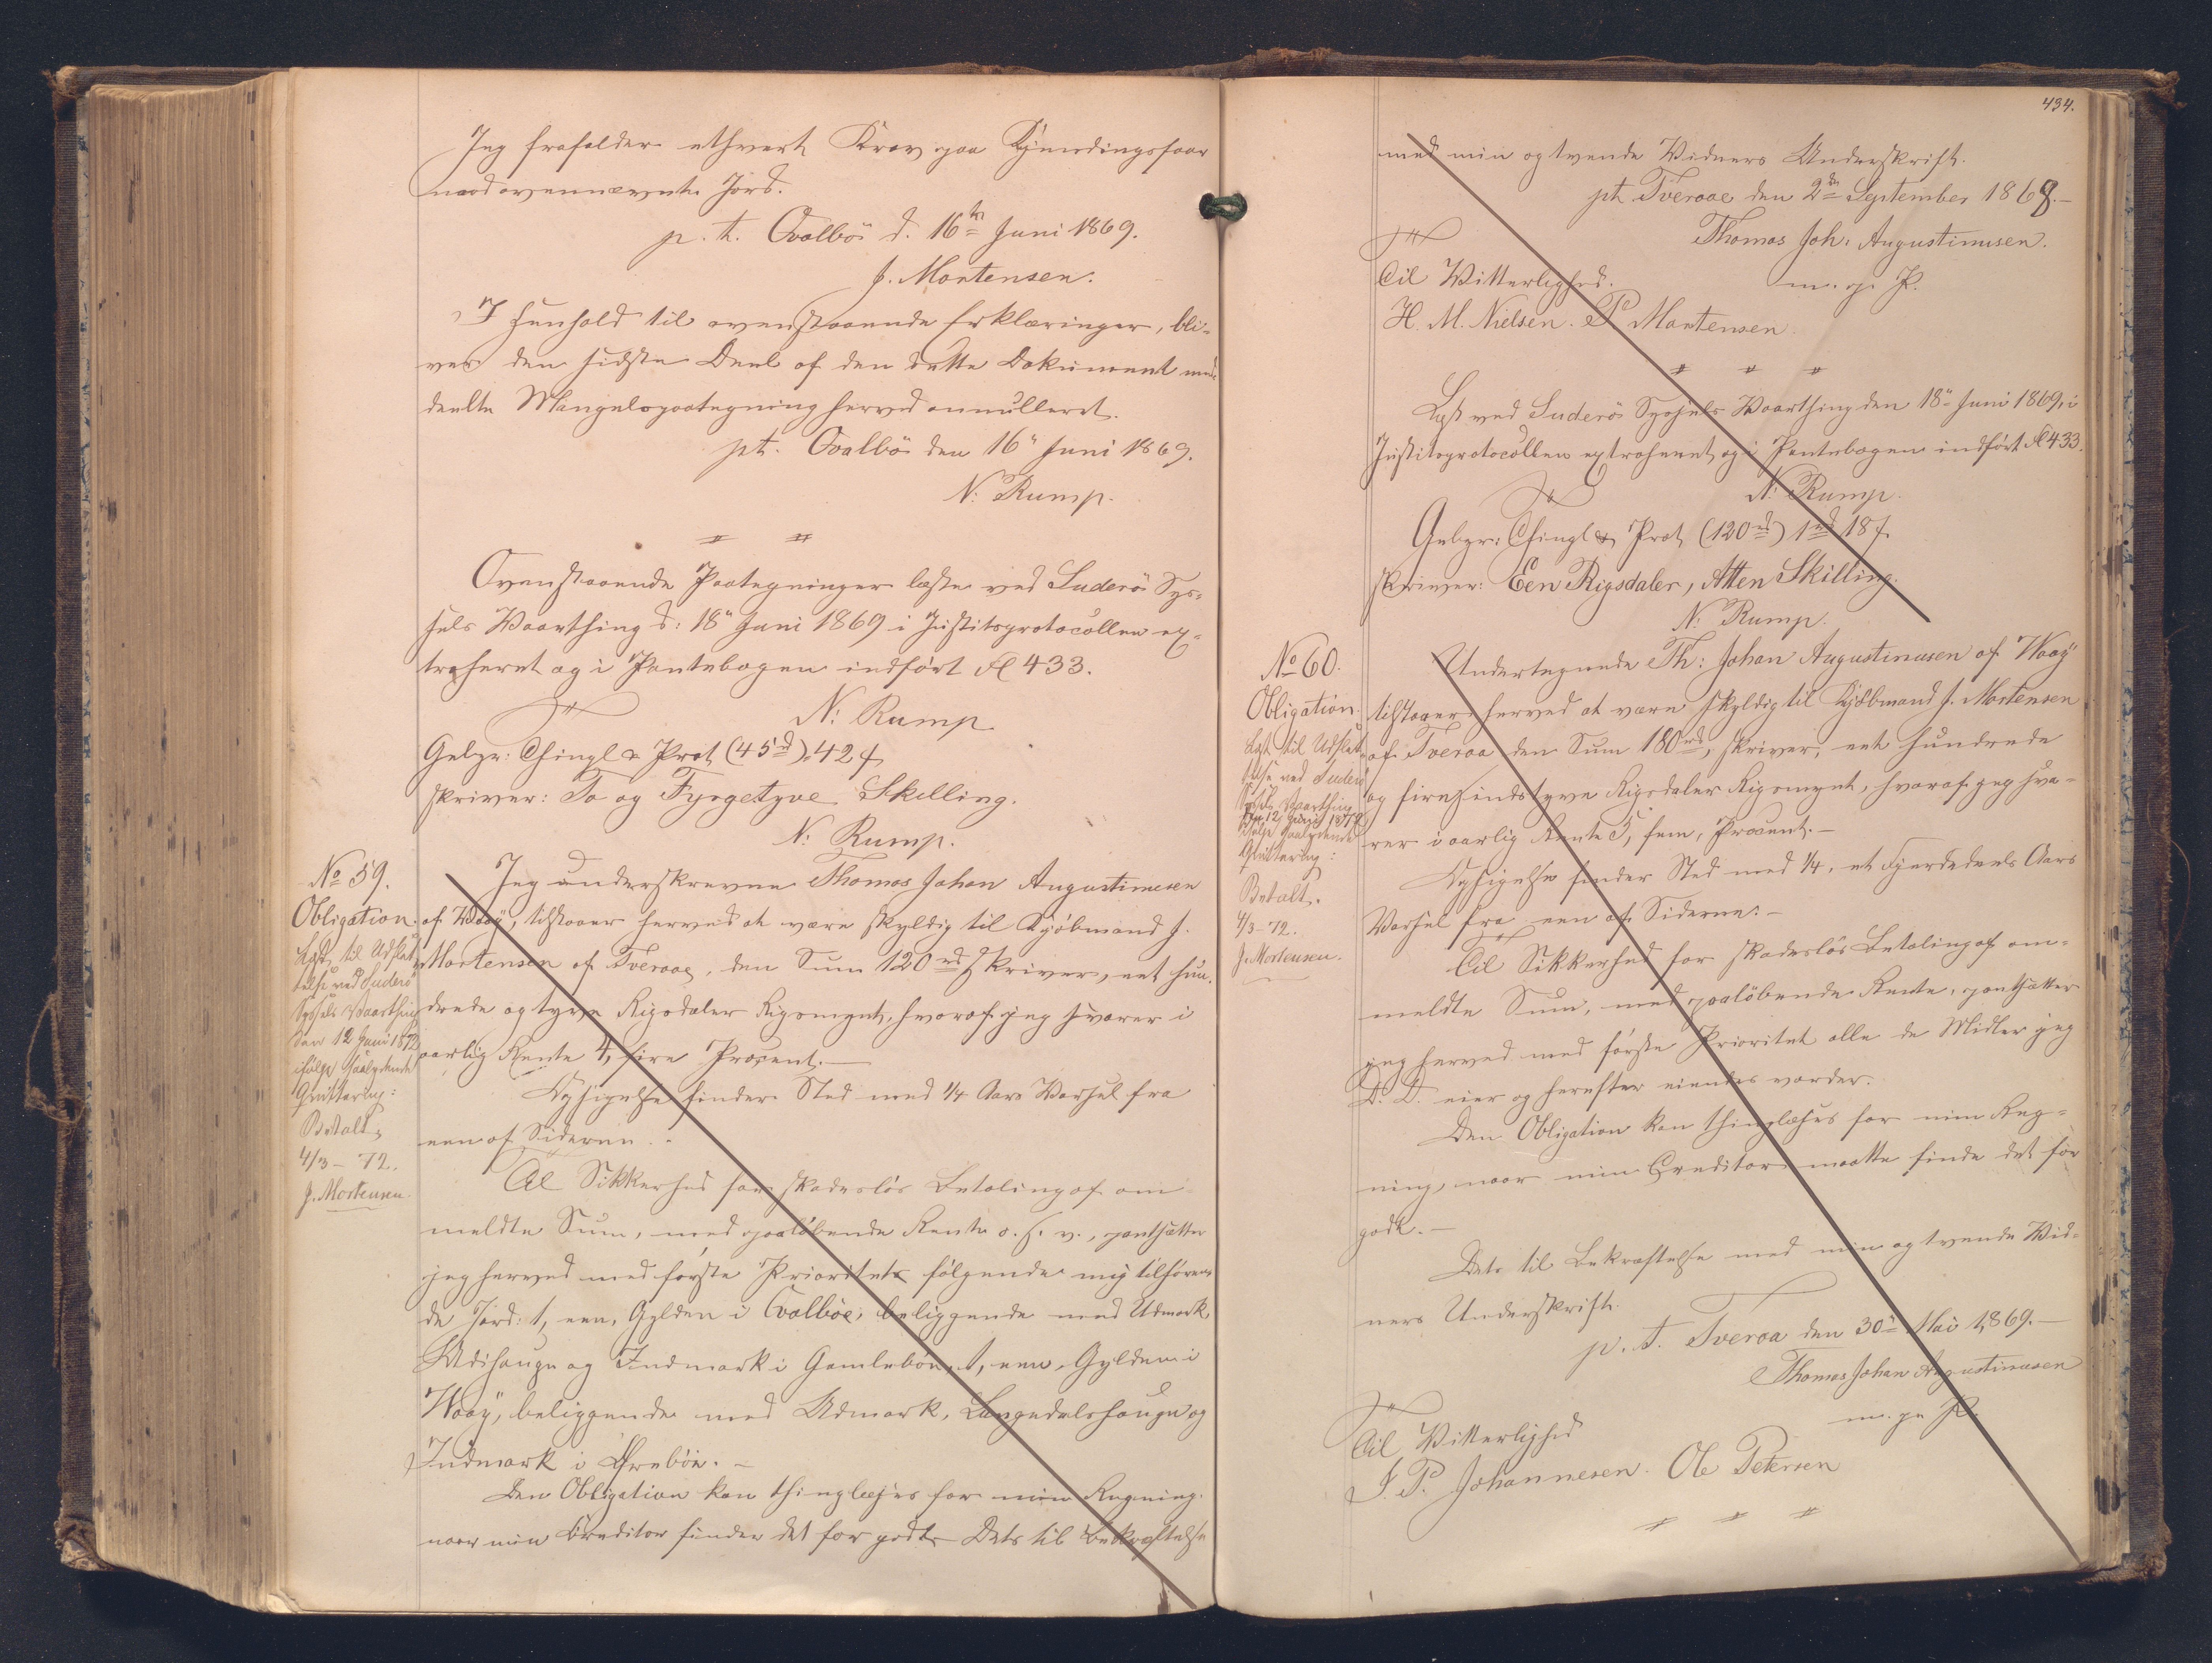 Jeg frafalder ethvert Krav paa Kjendingsfaar
mod ovennævnte Jord.
p. t. Qvalbö d. 16de Juni 1869.
J. Mortensen.
I Henhold til ovenstaaende Erklæringer, bli-
ver den sidste Deel af den dette Dokument med-
deelte Mangelspaategning herved annulleret.
pt. Qvalbö den 16" Juni 1869.
N: Rump.
Ovenstaaende Paategninger læste ved Suderö Sys-
sels Vaarthing d: 18" Juni 1869 i Justitsprotocollen ex-
traheret og i Pantebogen indfört Fol 433.
N: Rump
Gebyr: Thingl & Prot (45 rd) 42 ß
skriver: To og Fyrgetyve Skilling.
N: Rump.
No 59.
Obligation.
Lyst til Udslet-
telse ved Suderö
Syssels Vaarthing
den 12 Juni 1872
ifölge saalydende
Qvittering:
Betalt.
4/3 - 72.
J. Mortensen.
Jeg underskrevne Thomas Johan Augustinusen
af Waaÿ, tilstaaer herved at være skyldig til Kjöbmand J.
Mortensen af Tveraae, den Sum 120 rd skriver, eet hun-
drede og tyve Rigsdaler Rigsmynt, hvoraf jeg svarer i
aarlig Rente 4, fire Procent.—
Opsigelse finder Sted med 1/4 Aars Varsel fra
een af Siderne.—
Til Sikkerhed for skadeslös Betaling af om-
meldte Sum, med paalöbende Rente o. s. v., pantsætter
jeg herved med förste Prioritets fölgende mig tilhören-
de Jord: 1, een, Gylden i Qvalböe, beliggende med Udmark,
Udihauge og Indmark i Gamleböe, 1, een, Gylden i
Waaÿ, beliggende med Udmark, Langedalshauge og
Indmark i Öreböe.—
Den Obligation kan thinglæses for min Regning.
naar min Creditor finder det for godt— Dets til Bekræftelse
434.
med min og tvende Vidners Underskrift.
pt. Tveraae den 2den September 1868.—
Thomas Joh: Augustinusen.
m. p. P.
Til Vitterlighed.
H. M. Nielsen. P Mortensen
Lyst ved Suderö Syssels Vaarthing den 18" Juni 1869, i
Justitsprotocollen extraheret og i Pantebogen indfört Fol 433.
N: Rump.
Gebyr: Thingl & Prot (120 rd) 1 rd 18 ß
skriver: Een Rigsdaler, Atten Skilling.
N: Rump.
No 60.
Obligation.
Lyst til Udslet-
telse ved Suderö
Syssels Vaarthing
den 12 Juni 1872
ifölge saalydende
Qvittering:
Betalt.
4/3-72.
J. Mortensen.
Undertegnede Th: Johan Augustinusen af Waaÿ
tilstaaer herved at være skyldig til Kjöbmand J. Mortensen
af Tveraa den Sum 180 rd, skriver, eet hundrede
og firesindstyve Rigsdaler Rigsmynt, hvoraf jeg sva-
rer i aarlig Rente 5, fem, Procent.—
Opsigelse finder Sted med 1/4, et Fjerdedeels Aars
Varsel fra een af Siderne.—
Til Sikkerhed for skadeslös Betaling af om-
meldte Sum, med paalöbende Rente, pantsætter
jeg herved med förste Prioritet alle de Midler jeg
D. D. eier og herefter eiendes vorder.
Den Obligation kan thinglæses for min Reg-
ning, naar min Creditor maatte finde det for
godt.—
Dets til Bekræftelse med min og tvende Vid-
ners Underskrift.
p. t. Tveraa den 30te Mai 1869.—
Thomas Johan Augustinusen
m. p. P.
Til Vitterlighed
J. P. Johannesen. Ole Petersen